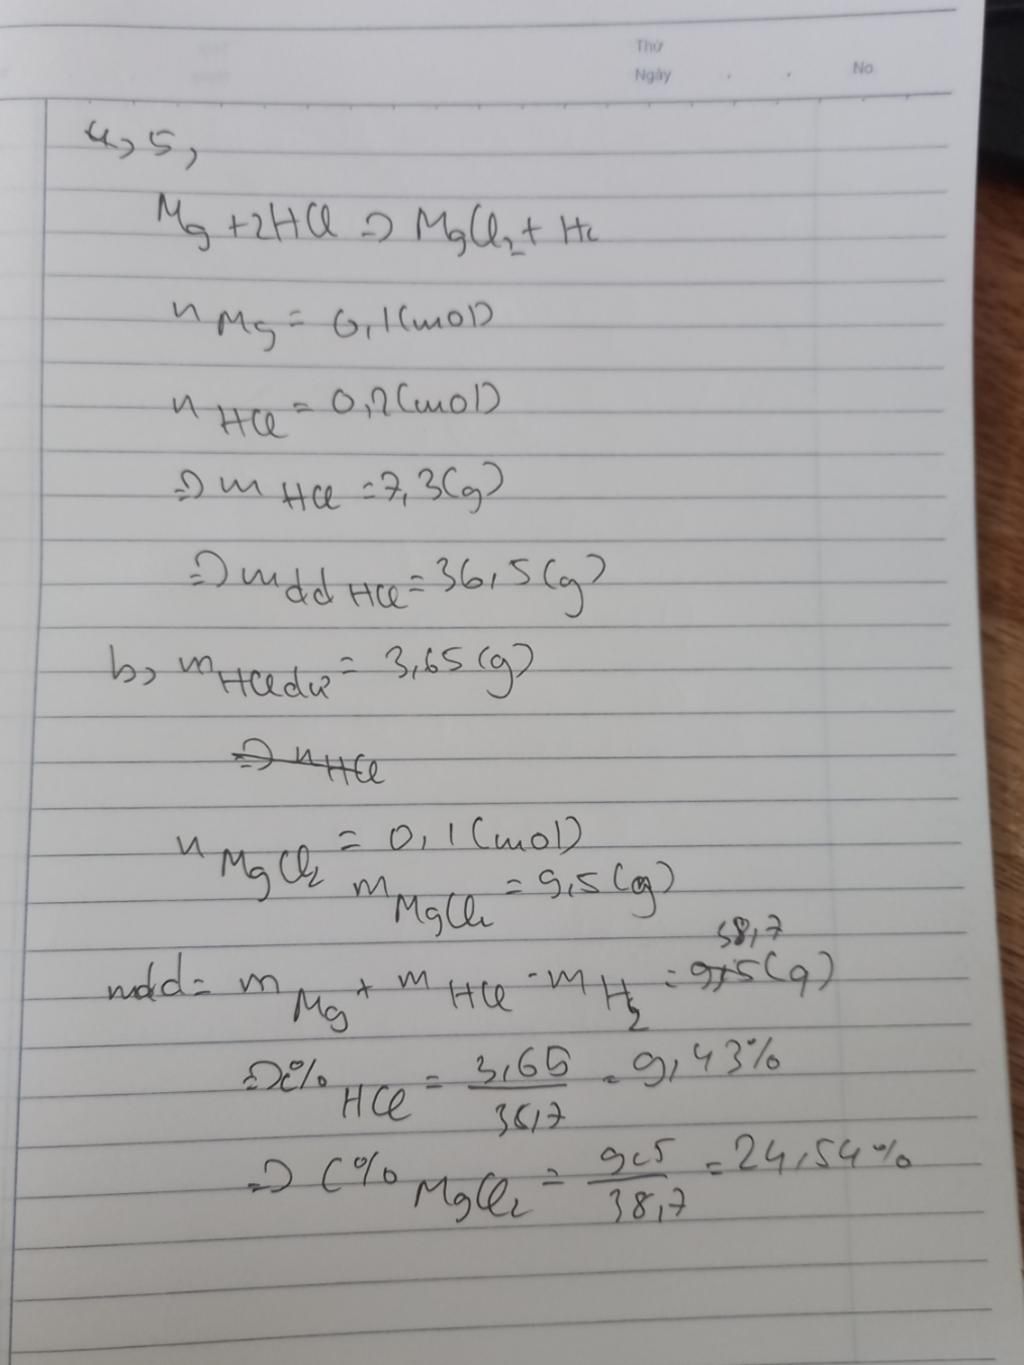 Thứ
Ngày . . No.
4, 5,
Mg + 2HCl ⇒ MgCl₂ + H₂
n Mg = 0,1 (mol)
n HCl = 0,2 (mol)
⇒ m HCl = 7,3 (g)
⇒ m dd HCl = 36,5 (g)
b, m HCl dư = 3,65 (g)
⇒ n HCl
n MgCl₂ = 0,1 (mol)
m MgCl₂ = 9,5 (g)
38,7
mdd = m Mg + m HCl - m H₂ = 9,5 (g)
⇒ C% HCl = 3,65 / 38,7 = 9,43%
⇒ C% MgCl₂ = 9,5 / 38,7 = 24,54%